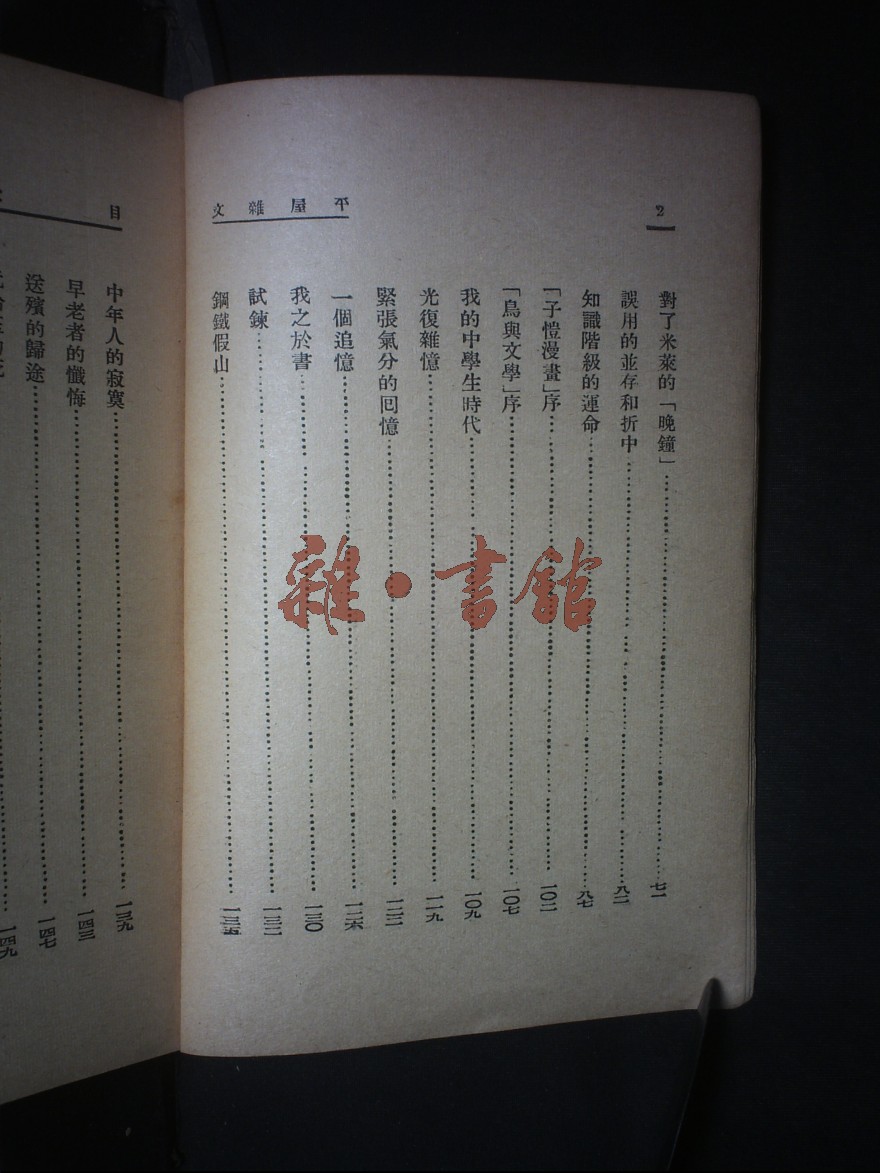 2
平屋雜文
對了米萊的「晚鐘」……七一
誤用的並存和折中……八二
知識階級的運命……八七
「子愷漫畫」序……一〇二
「鳥與文學」序……一〇七
我的中學生時代……一〇九
光復雜憶……一一九
緊張氣分的回憶……一二二
一個追憶……一二六
我之於書……一三〇
試鍊……一三二
鋼鐵假山……一三五
目
中年人的寂寞……一三九
早老者的懺悔……一四三
送殯的歸途……一四七
一四九
雜·書館